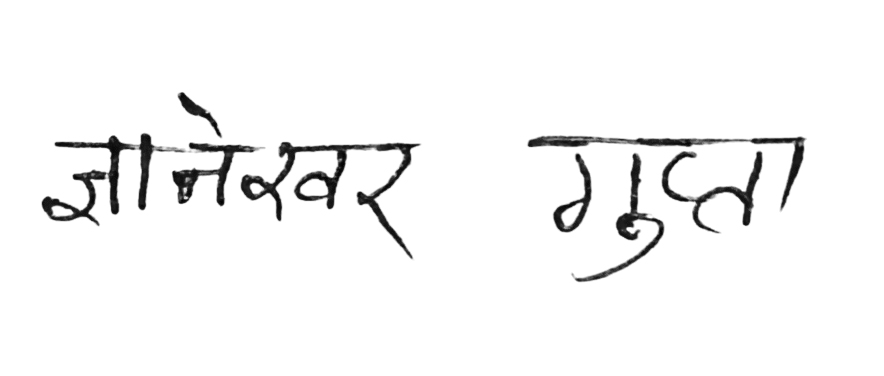 ज्ञानेश्वर गुप्ता